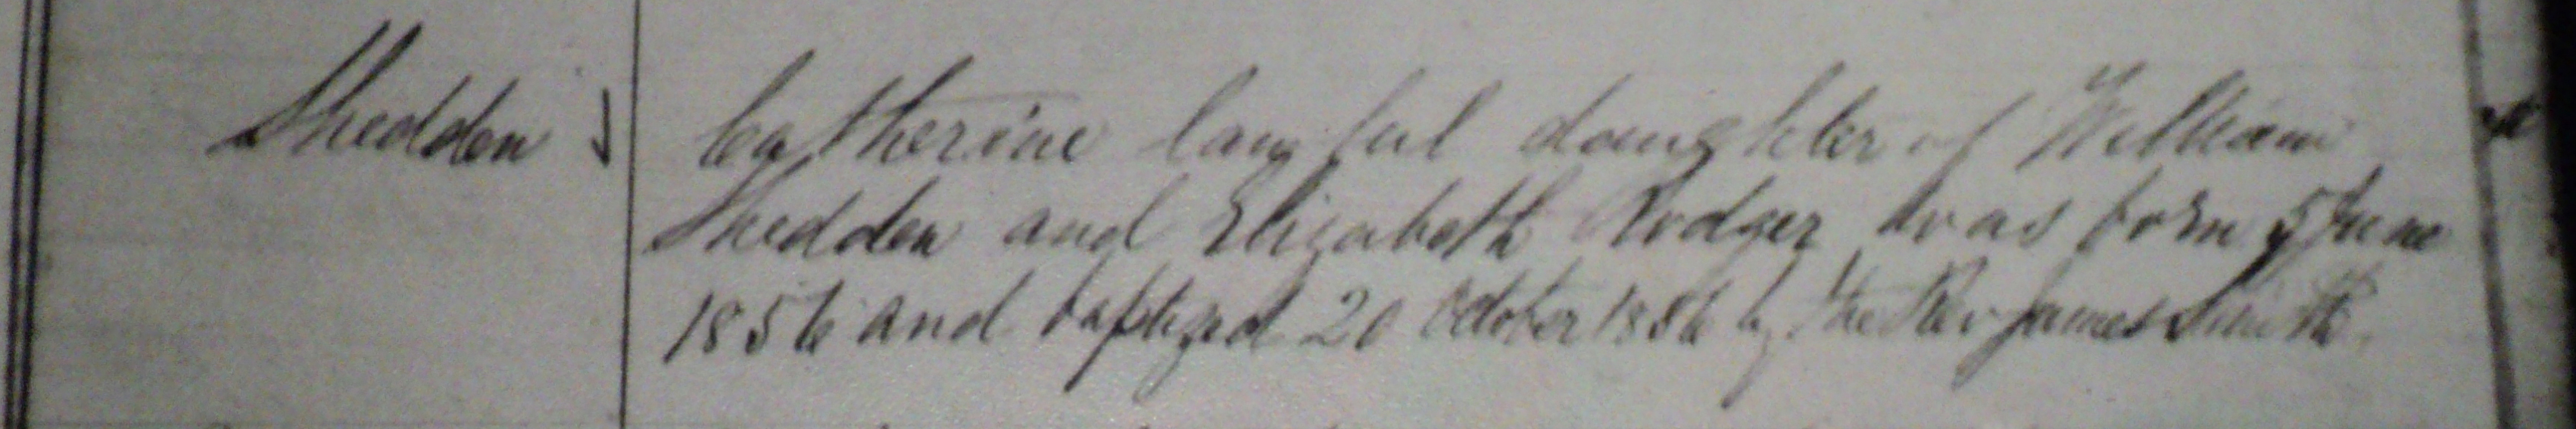 Shedden
Catherine lawful daughter of William
Shedden and Elizabeth Rodger was born 5 June
1856 and baptized 20 October 1856 by the Rev James Smith